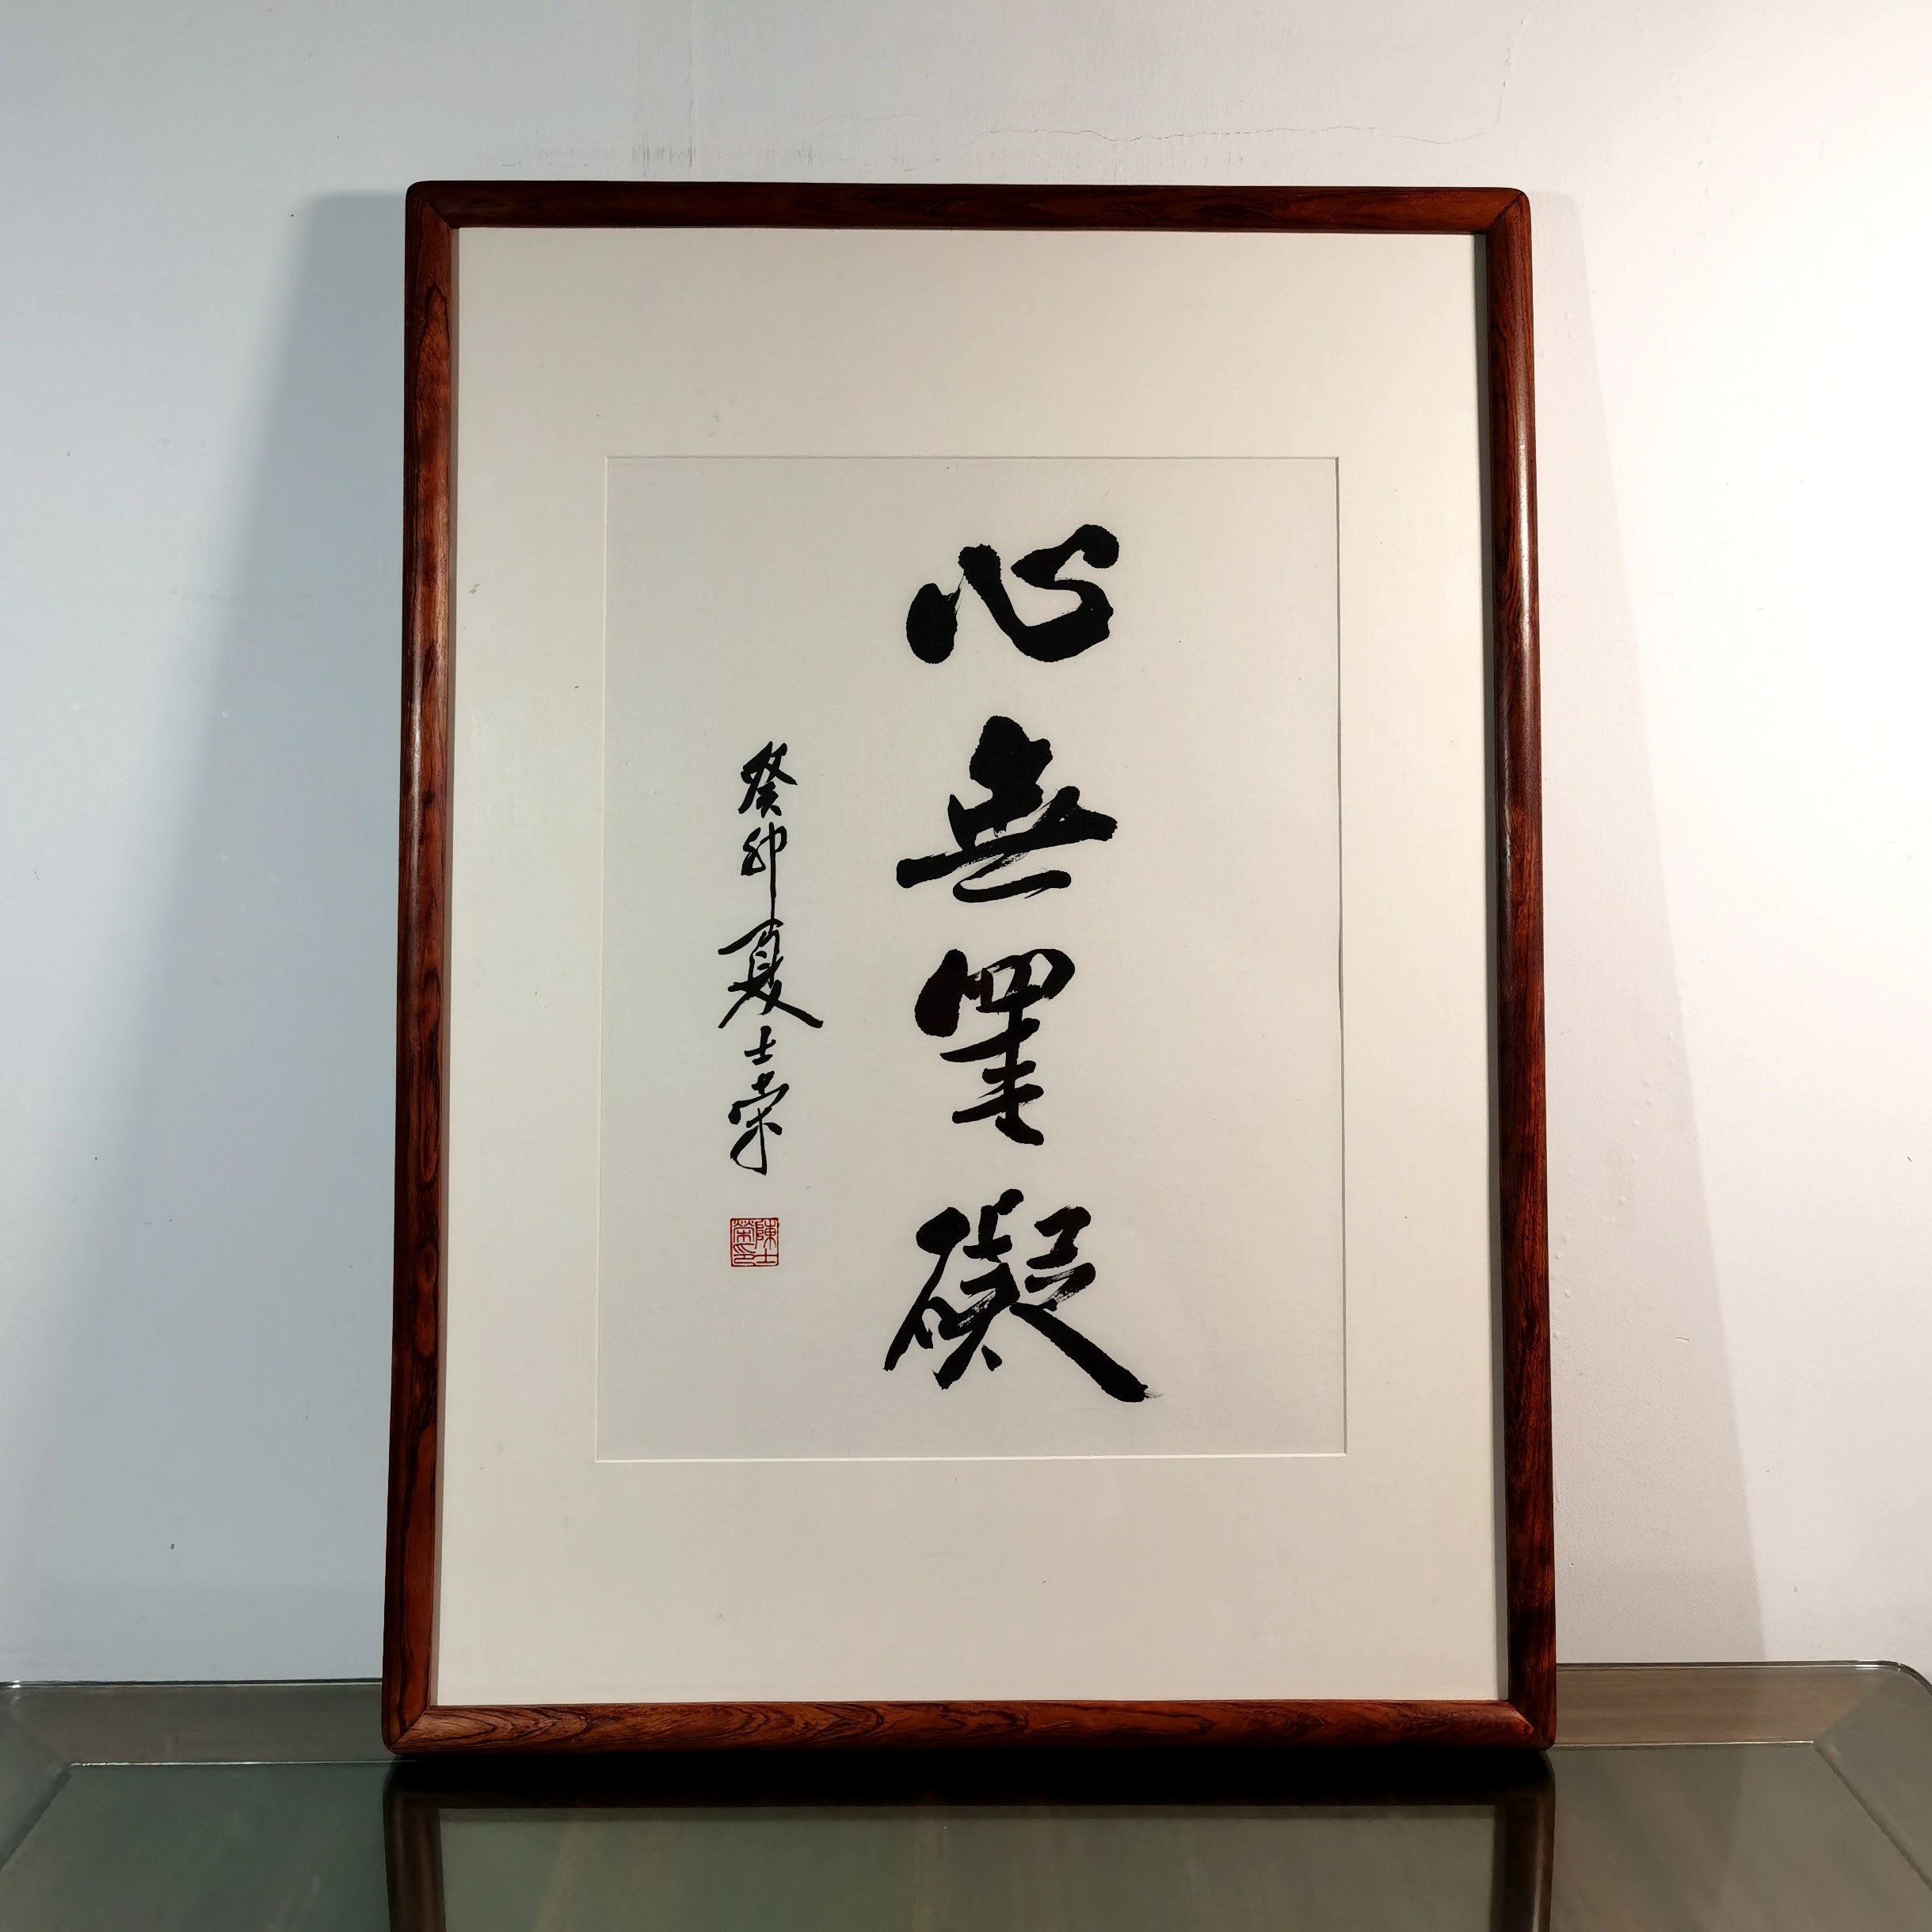 心無罣礙
癸卯夏士榮
陳士榮印